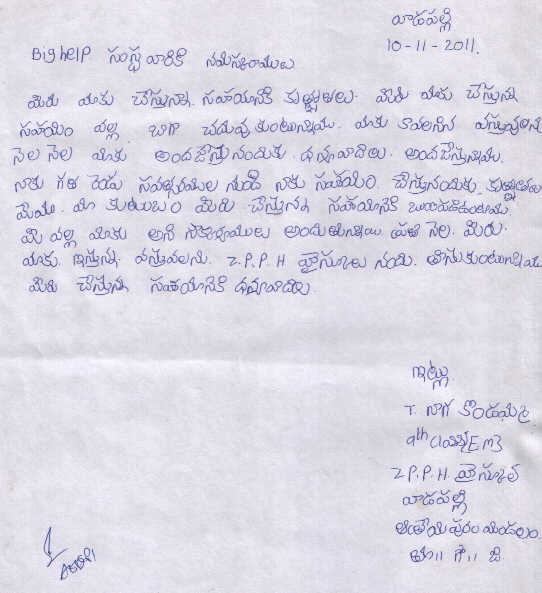 వాడపల్లి
10-11-2011.
Bighelp సంస్థ వారికి నమస్కారములు
మీరు మాకు చేస్తున్నా సహాయానికి కృతజ్ఞతలు. మీరు మాకు చేస్తున్న
సహాయం వల్ల బాగా చదువుకుంటున్నాము. మాకు కావలసిన వస్తువులని
నెల నెల మాకు అందజేస్తునందుకు ధన్యవాదాలు. అందజేస్తున్నారు.
నాకు గత రెండు సంవత్సరముల నుండి నాకు సహాయం. చేస్తునందుకు కృతజ్ఞతలు
మేము. మా కుటుంబం మీరు చేస్తున్న సహాయానికి ఋణపడిఉంటాము
మీ వల్ల మాకు అని సౌకర్యములు అందుతున్నాయి ప్రతి నెల. మీరు.
మాకు ఇస్తున్న వస్తువులను. Z.P.P.H హైస్కూలు నందు. తీసుకుంటున్నాము
మీరు చేస్తున్న సహాయానికి ధన్యవాదాలు.
ఇట్లు
T. నాగ కొండమ్మ
9th class E m
Z.P.P.H. హైస్కూల్
వాడపల్లి
ఆత్రేయపురం మండలం.
తూ॥ గో॥ జి